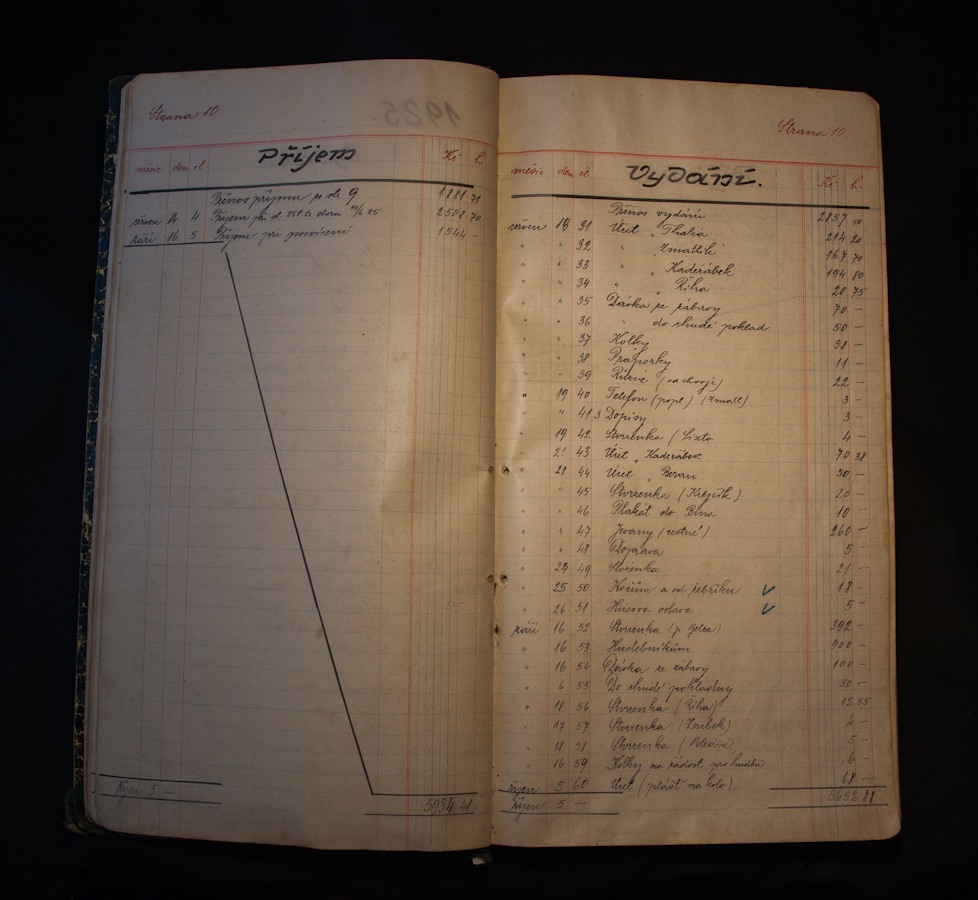 Strana 10
1925
Příjem
měsíc den čl Kč h
Přenos příjmu ze str. 9 1881 71
červen 14 4 Příjem při 2508 70
září 16 5 Příjem při posvícení 1544 –
říjen 5 –
5934 41
Strana 10.
Vydání.
měsíc den čl Kč h.
Přenos vydání 2857 50
červen 18 31 Účet „ Thalia 214 20
" " 32 " " Zmatlík 167 70
" " 33 " " Kadeřábek 194 80
" " 34 " " Říha 20 75
" " 35 Dávka ze zábavy 70 –
" " 36 " do chudé poklad 50 –
" " 37 Kolky 38 –
" " 38 Práporky 11 –
" " 39 Různé 22 –
" 19 40 Telefon (popl.) (Zmatl) 3 –
" " 41 Dopisy 3 –
" 19 42 Stvrzenka (Lixta 4 –
" 21 43 Účet „ Kadeřábek 70 38
" 21 44 Účet „ Beran 50 –
" " 45 Stvrzenka (Krejčík) 20 –
" " 46 Plakát do Blna 10 –
" " 47 (čestné) 260 –
" " 48 Doprava 5 –
" 24 49 21 –
" 25 50 Kočím a od žebříku 18 –
" 26 51 Husova oslava 5 –
září 16 52 Stvrzenka (p. 392 –
" 16 53 Hudebníkům 900 –
" 16 54 Dávka ze zábavy 100 –
" 6 55 Do chudé pokladny 30 –
" 18 56 Stvrzenka (Říha) 12 55
" 17 57 Stvrzenka (Zoubek) 4 –
" 18 58 Stvrzenka 5 –
" 16 59 Kolky na žádost pro hudbu 6 –
říjen 5 60 Účet (plášť na kolo) 68 –
říjen 5 – 5652 88